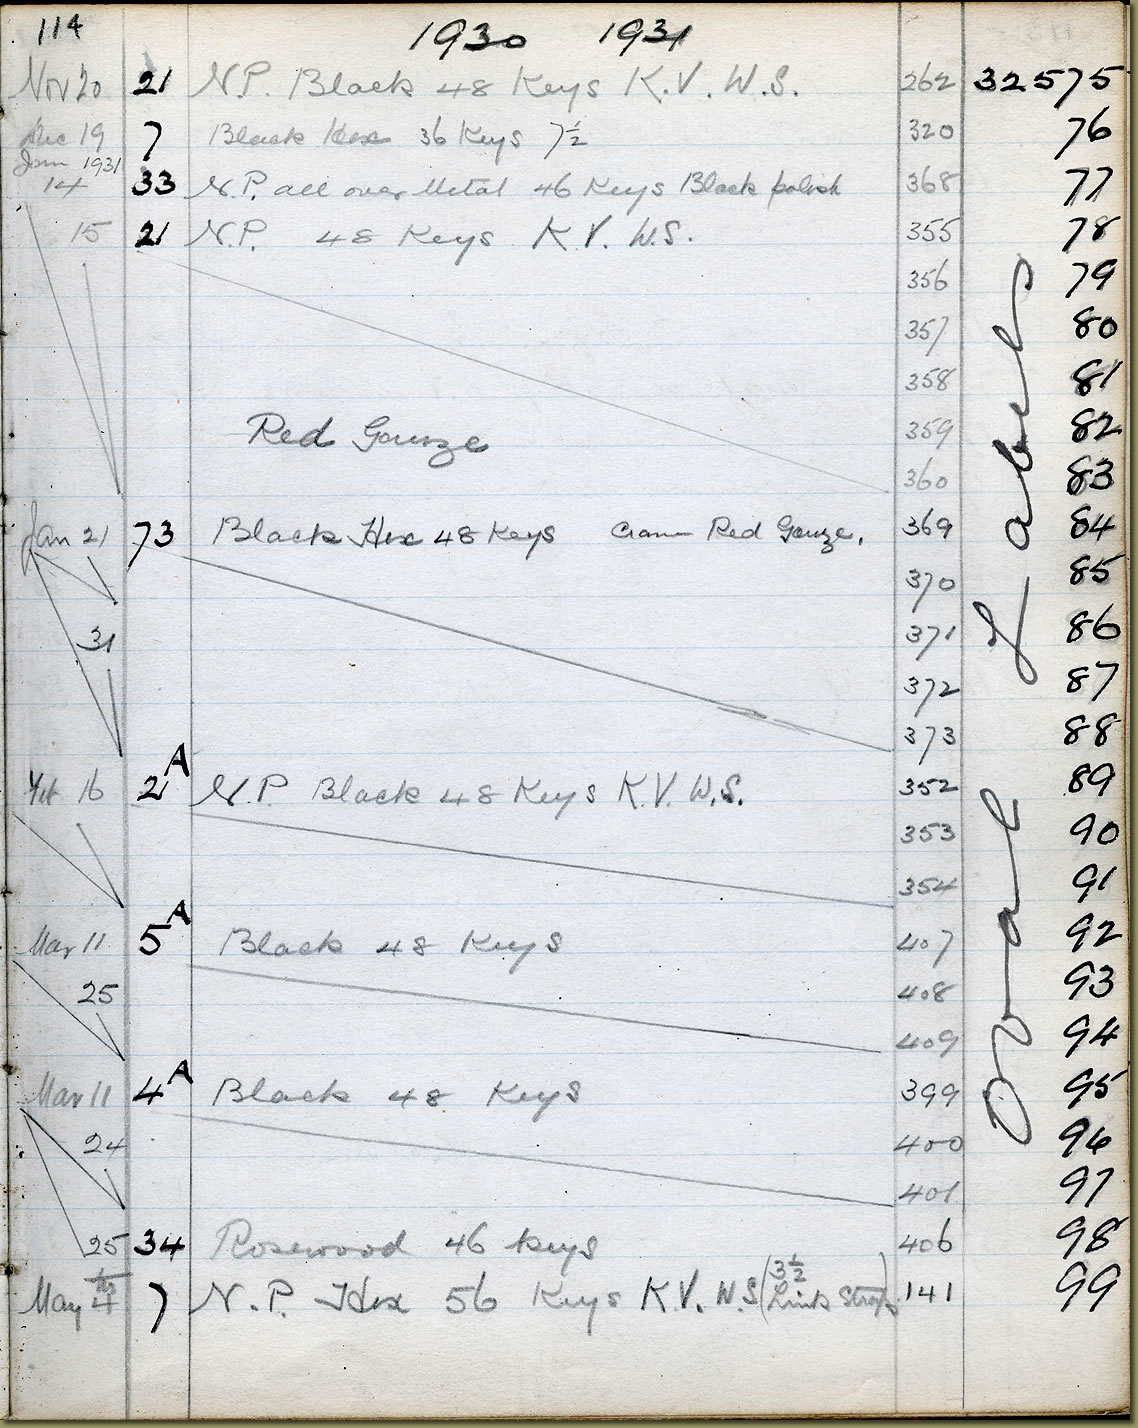 114 1930 1931
Nov 20 21 N.P. Black 48 Keys K.V. W.S. 262 32575
Dec 19 7 Black Hex 36 Keys 7½ 320 76
Jan 1931
14 33 N.P. all over Metal 46 Keys Black polish 368 77
15 21 N.P. 48 Keys K.V. W.S. 355 78
356 79
357 80
358 81
Red Gauze 359 82
360 83
Jan 21 73 Black Hex 48 Keys Red Gauze. 369 84
370 85
31 371 86
372 87
373 88
Feb 16 2A N.P. Black 48 Keys K.V. W.S. 352 89
353 90
354 91
Mar 11 5A Black 48 Keys 407 92
25 408 93
409 94
Mar 11 4A Black 48 Keys 399 95
24 400 96
401 97
25 34 Rosewood 46 Keys 406 98
May 4th 7 N.P. Hex 56 Keys K.V. W.S (3½ Link Straps) 141 99
Oval Labels